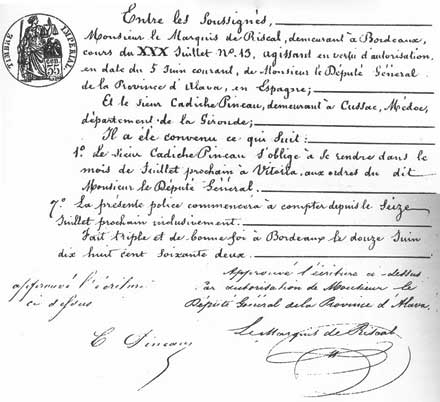 TIMBRE IMPERIAL
Entre les Soussignés,
Monsieur le Marquis de Riscal, demeurant à Bordeaux,
cours du XXX Juillet Nº 13, agissant en vertu d'autorisation,
en date du 5 Juin courant, de Monsieur le Député Général
de la Province d'Alava, en Espagne;
Et le sieur Cadiche Pineau, demeurant à Cussac, Médoc,
département de la Gironde;
Il a été convenu ce qui Suit:
1º Le Sieur Cadiche Pineau s'oblige à se rendre dans le
mois de Juillet prochain à Vitoria, aux ordres du dit
Monsieur le Député Général.
7º La présente police commencera à compter depuis le Seize
Juillet prochain inclusivement.
Fait triple et de bonne foi à Bordeaux le douze Juin
dix huit cent soixante deux.
approuvé l'écriture
ci dessus
Approuvé l'écriture ci dessus
par autorisation de Monsieur le
Député Général de la Province d'Alava
C Pineau
Le Marquis de Riscal